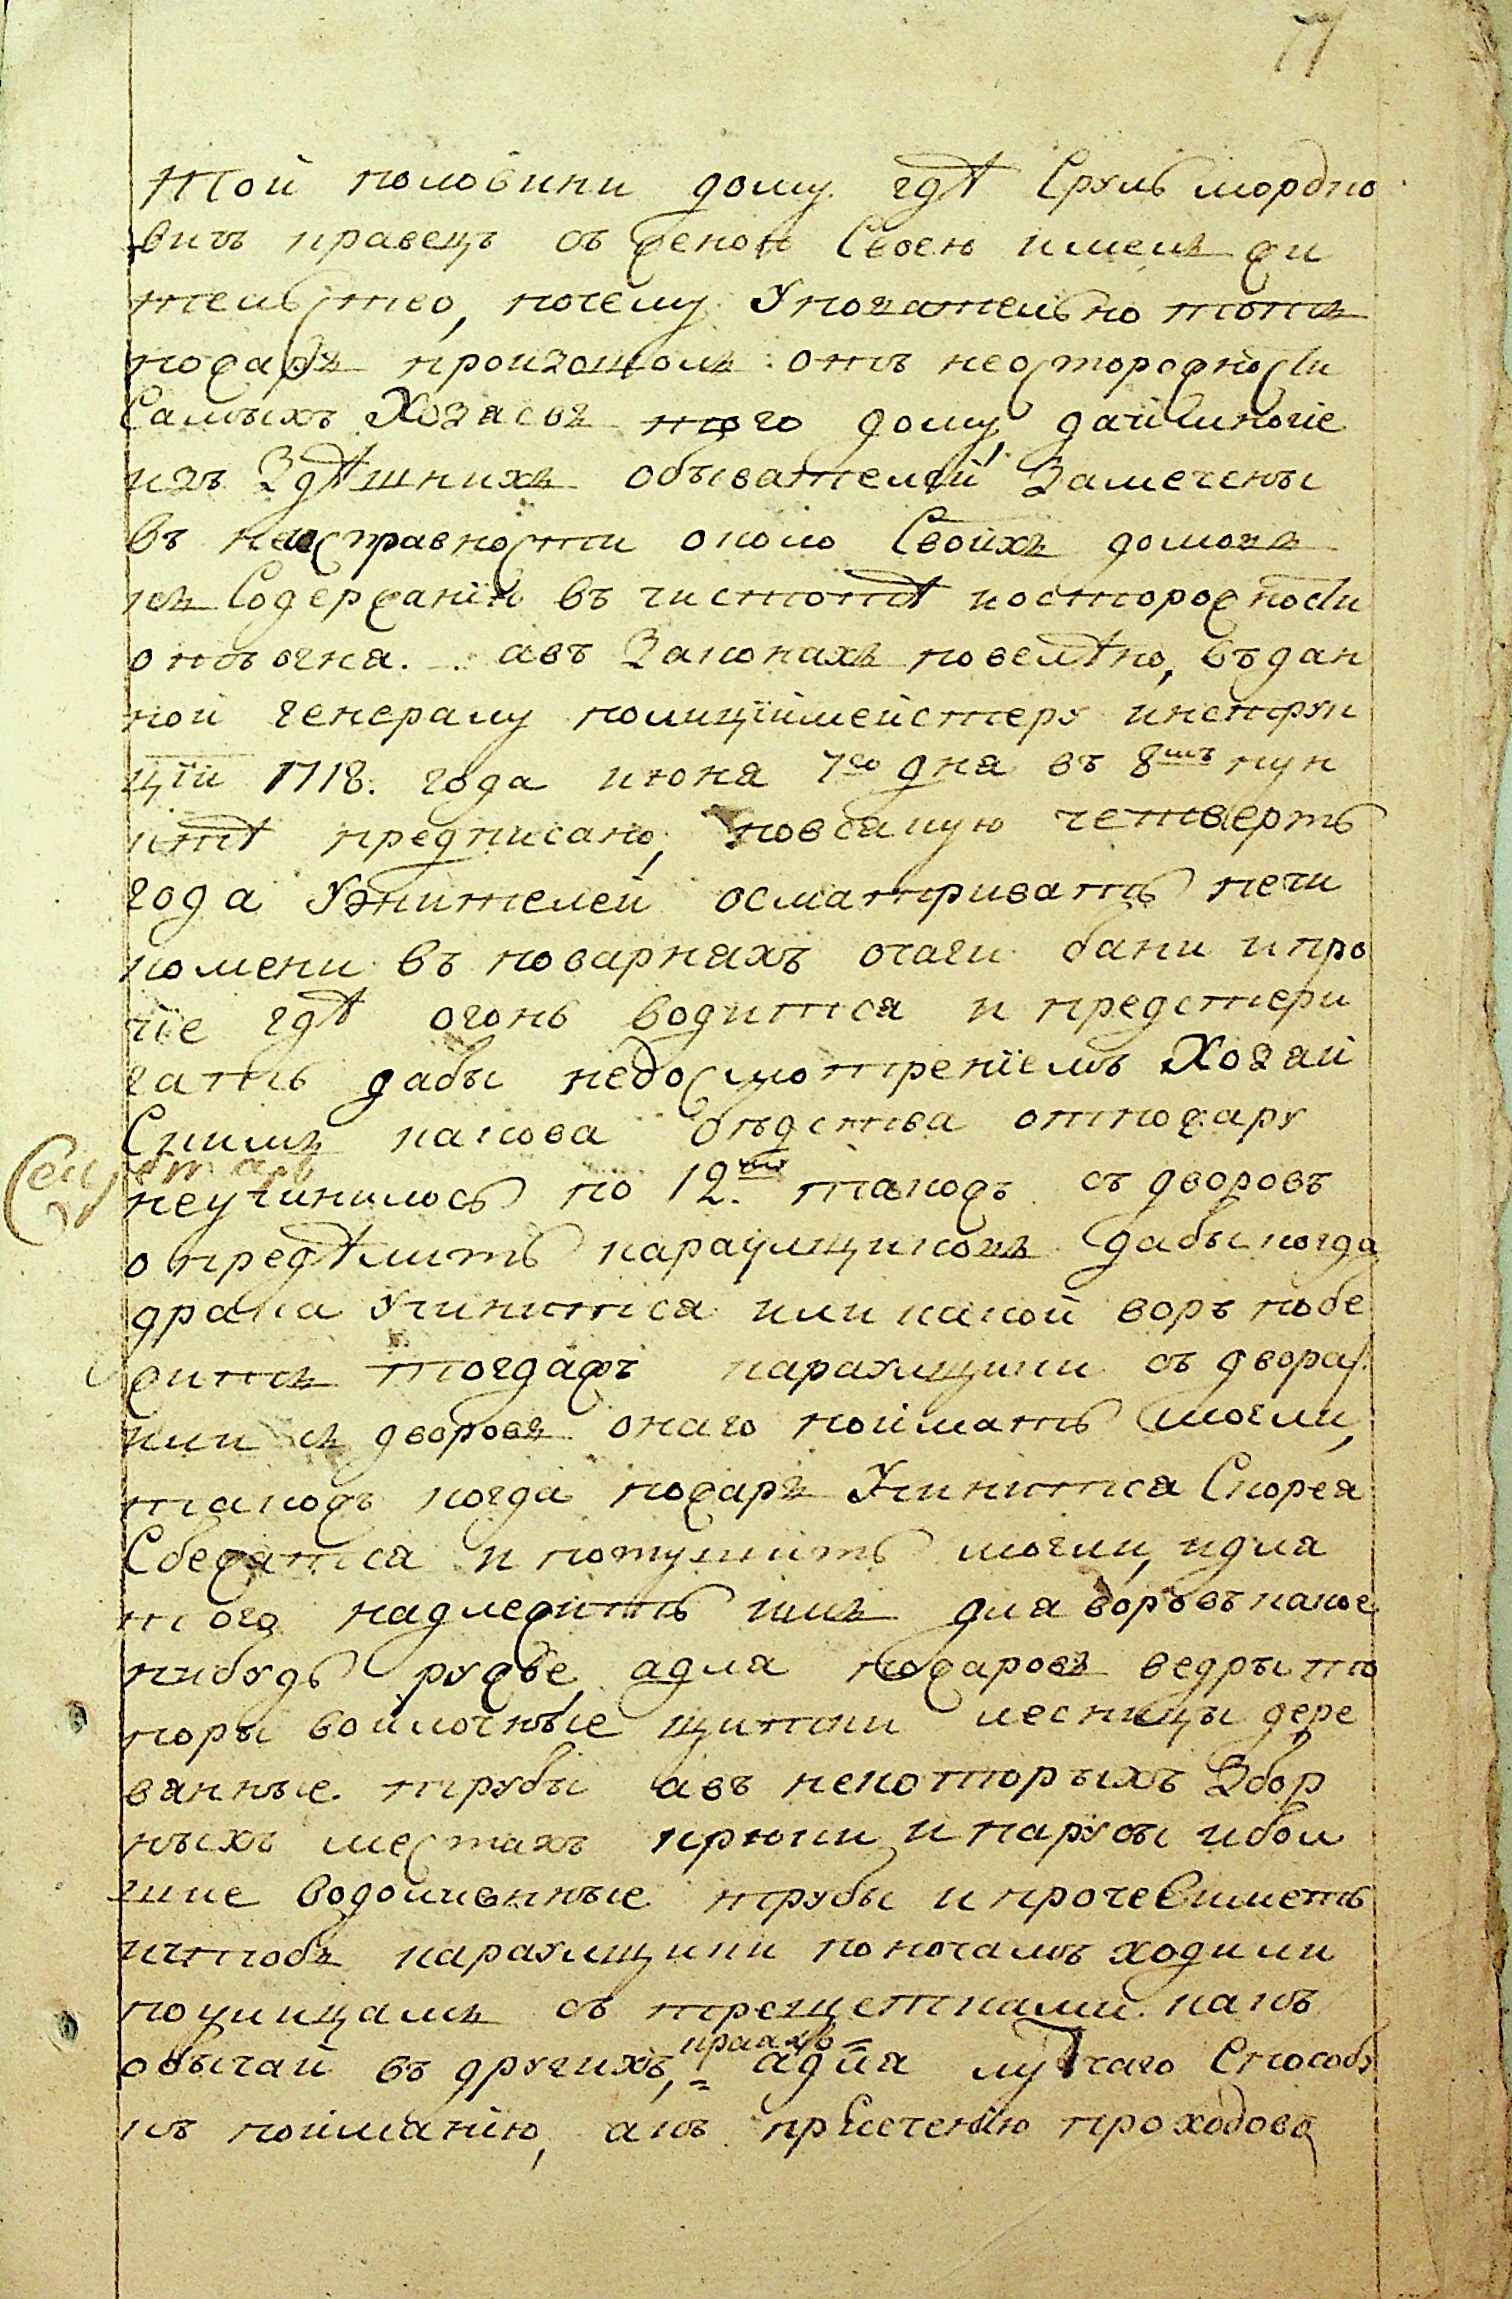 той половини дому гдѣ Сруль мордко
вичъ кравецъ съ женою Своею имелъ жи
тельство, почему Упователно тотъ
пожаръ произошолъ отъ неосторожности
Самыхъ Хозаевъ того дому, даи многіе
изъ Здѣшнихъ обывателей Замечены
въ неисправности около Своихъ домовъ
къ Содержанію въ чистотѣ и осторожности
отъ огна. авъ Законахъ повелѣно, въ дан
ной генералу полицїймейстеру инструк
цїи 1718. года июня 7го дня въ 8мъ пун
ктѣ предписано, повсякую четверть
года Ужителей осматривать печи
комени въ поварняхъ очаги бани и про
чїе гдѣ огонь водится и предстери
гать дабы недосмотренїемъ Хозяй
Скимъ какова бѣдства отпожару
неучинилось по 12. такожъ съ дворовъ
Секретарь
опредѣлить караулщиковъ дабы когда
драка Учинится или какой воръ побе
житъ тогдажъ караулщики съ двора
къ дворовъ онаго поймать могли,
такожъ когда пожаръ Учинится Скорея
Сбежатся и потушить могли, идля
того надлежитъ имъ для воровъ какое
нибудь ружье, адля пожаровъ ведры то
поры войлочные щитки лесницы дере
вянные трубы авъ некоторыхъ Збор
ныхъ местахъ крюки и парусы и бол
шие водоливные трубы и прочее иметь
ичтобъ караулщики по ночамъ ходили
поулицамъ съ трещетками какъ
обычай въ другихъ, краяхъ адля лутчаго Способу
къ пойманию, акъ пресечению проходовъ